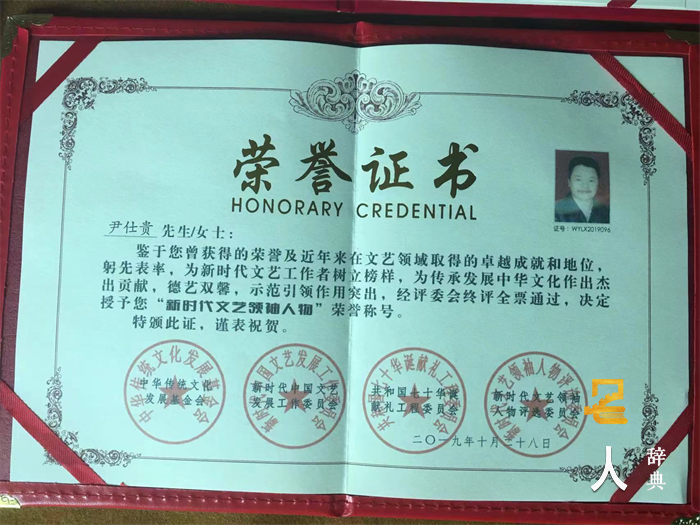 荣誉证书
HONORARY CREDENTIAL
证号：WYLX2019096
尹仕贵 先生/女士：
鉴于您曾获得的荣誉及近年来在文艺领域取得的卓越成就和地位，
躬先表率，为新时代文艺工作者树立榜样，为传承发展中华文化作出杰
出贡献，德艺双馨，示范引领作用突出，经评委会终评全票通过，决定
授予您“新时代文艺领袖人物”荣誉称号。
特颁此证，谨表祝贺。
中华传统文化发展基金会
中华传统文化
发展基金会
新时代中国文艺发展工作委员会
新时代中国文艺
发展工作委员会
共和国七十华诞献礼工程委员会
共和国七十华诞
献礼工程委员会
新时代文艺领袖人物评选委员会
新时代文艺领袖
人物评选委员会
二〇一九年十月二十八日
人
辞典